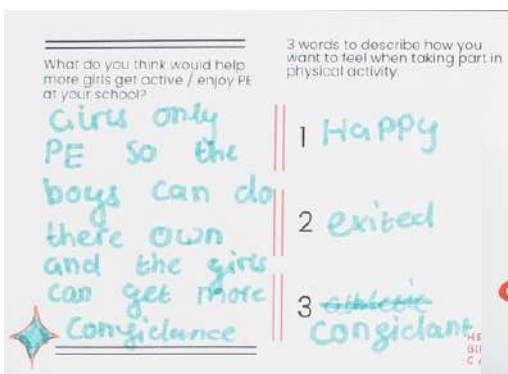 What do you think would help
more girls get active / enjoy PE
at your school?
Girls only
PE so the
boys can do
there own
and the girls
can get more
Congidance
3 words to describe how you
want to feel when taking part in
physical activity.
1 Happy
2 exited
3 athletic
Congidant
HE
GI
CA